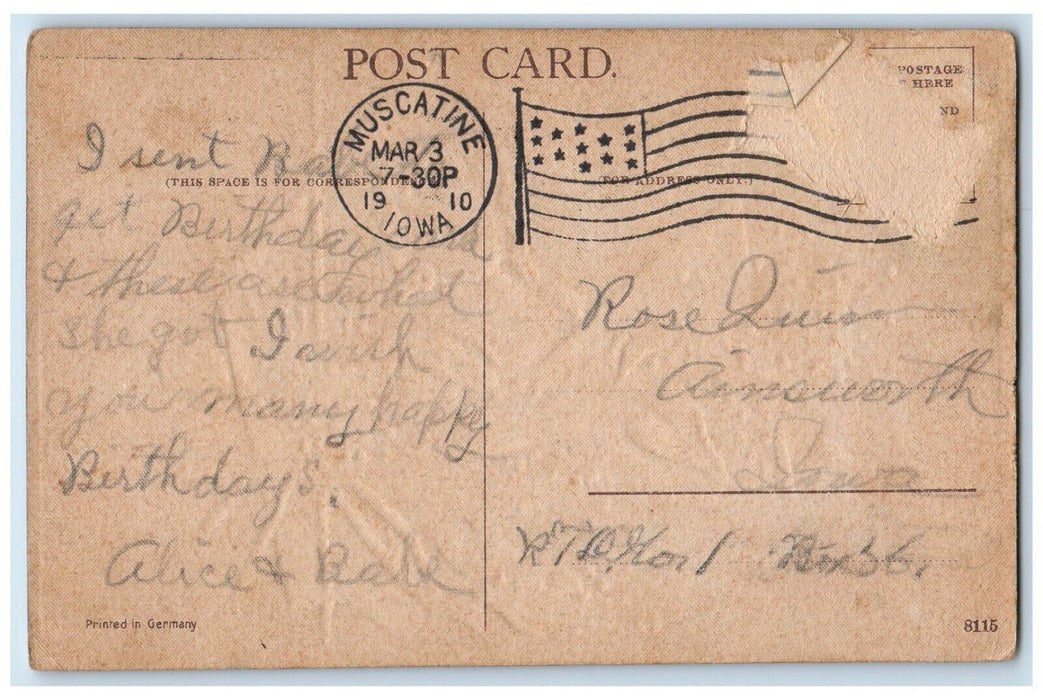 POST CARD.
POSTAGE
HERE
ND
MUSCATINE
MAR 3
7-30P
19 10
IOWA
(THIS SPACE IS FOR CORRESPONDENCE
(FOR ADDRESS ONLY.)
I sent
get Birthday
& these are what
she got I wish
you many happy
Birthdays.
Alice & Babe
Rose Quinn
Ainsworth
Iowa
R.F.D. No 1 Box 36.
Printed in Germany
8115